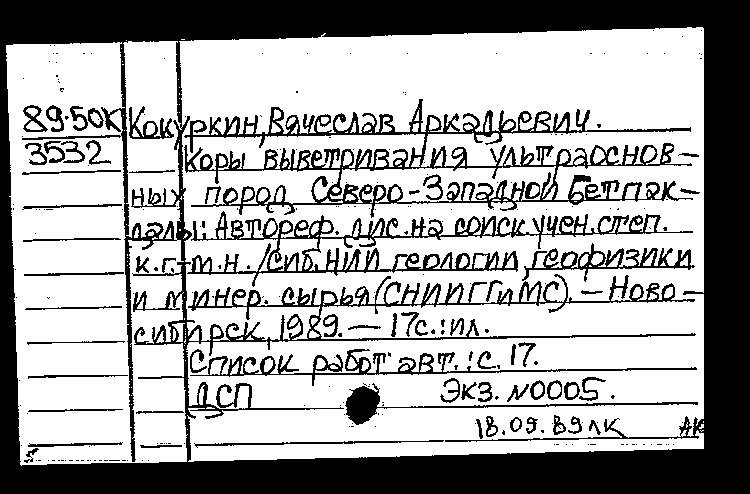 89-50К Кокуркин, Вячеслав Аркадьевич.
3532 Коры выветривания ультраоснов-
ных пород Северо-Западной Бетпак-
далы: Автореф. дис. на соиск. учен. степ.
к.г.-м.н. /Сиб. НИИ геологии, геофизики
и минер. сырья (СНИИГГиМС). – Ново-
сибирск, 1989. — 17с.: ил.
Список работ авт.: с. 17.
ДСП Экз. N0005.
18.09.89 лк АК